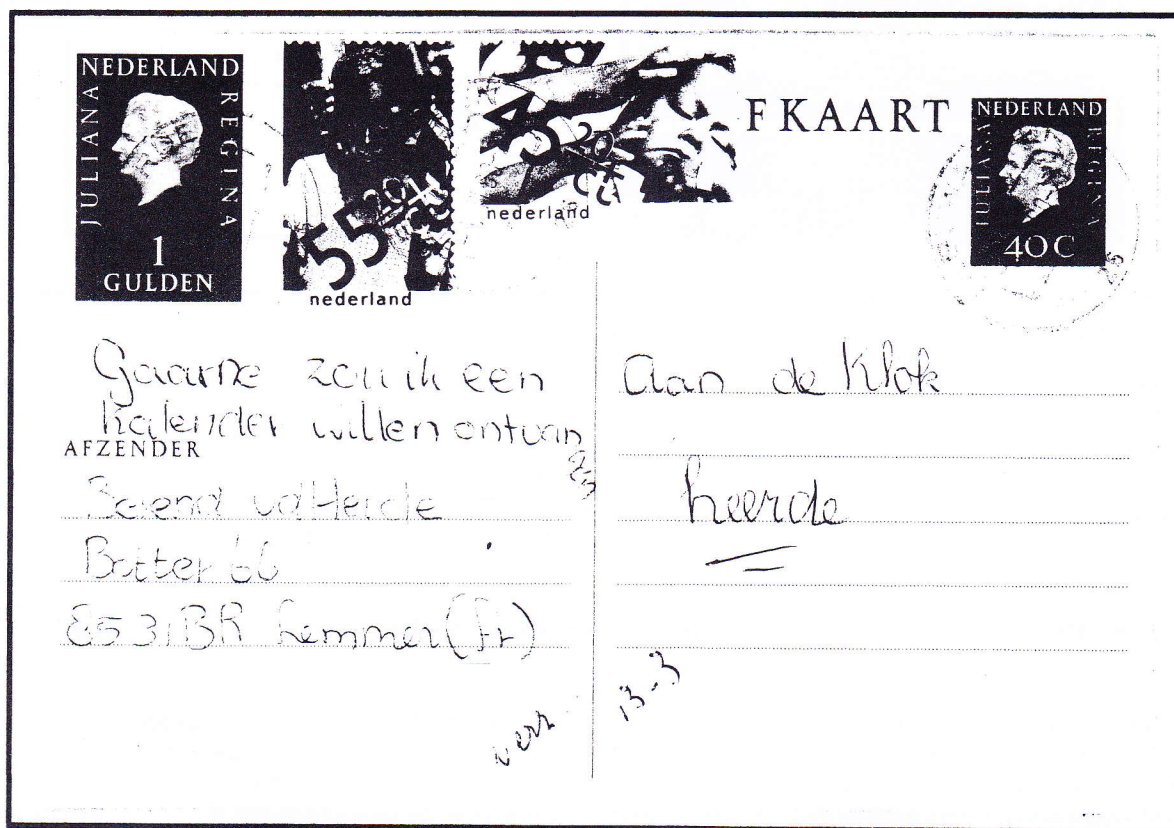 NEDERLAND
JULIANA
REGINA
1
GULDEN
55 20+ ct
nederland
45 20+ ct
nederland
FKAART
NEDERLAND
JULIANA
REGINA
40 C
Gaarne zou ik een
kalender willen ontvan
gen
AFZENDER
Barend vd Heide
Botter 66
8531 BR Lemmer (Fr)
Aan de Klok
heerde
verz. 13-3